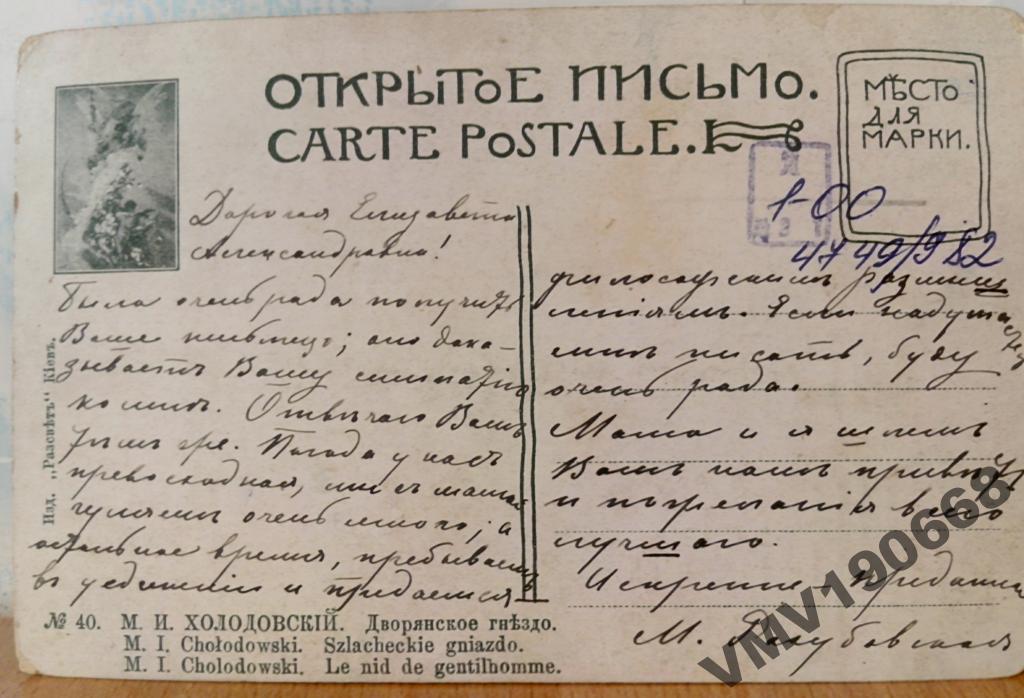 ОТКРЫТОЕ ПИСЬМО.
CARTE POSTALE.
МѢСТО
ДЛЯ
МАРКИ.
1-00
4749/982
Дорогая Елизавета
Александровна!
Была очень рада получить
Ваше письмецо; оно дока-
зываетъ Вашу симпатію
ко мнѣ. Отвѣчаю Вамъ
тѣмъ же. Погода у насъ
превосходная, мы съ мамой
гуляемъ очень много; а
остальное время, пребываемъ
въ уединеніи и предаемся
философскимъ размыш
леніямъ. Если надумаете
мнѣ писать, буду
очень рада.
Мама и я шлемъ
Вамъ нашъ привѣтъ
и пожеланія всего
лучшаго.
Искренно преданная
М. Голубовская
Изд. „Разсвѣтъ" Кіевъ.
№ 40. М. И. ХОЛОДОВСКІЙ. Дворянское гнѣздо.
M. I. Chołodowski. Szlacheckie gniazdo.
M. I. Cholodowski. Le nid de gentilhomme.
VMV190668